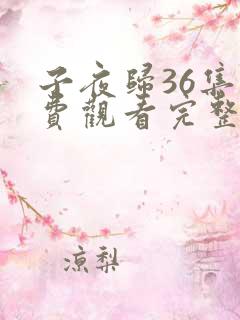 子夜歸36集
費觀看完整
涼梨